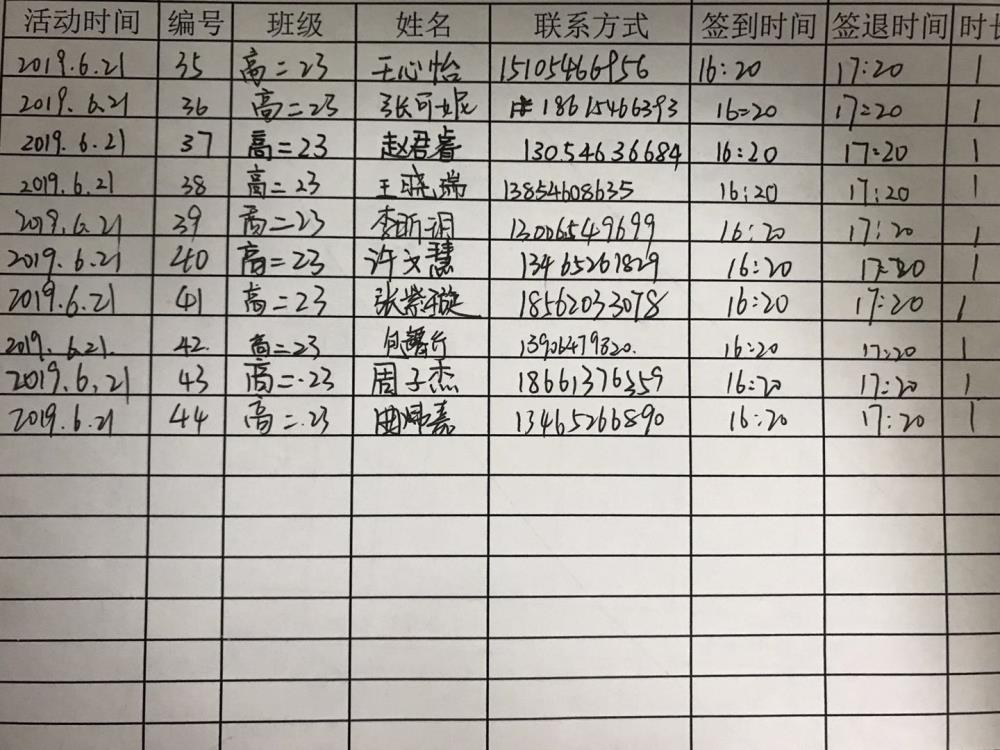 活动时间 编号 班级 姓名 联系方式 签到时间 签退时间 时长
2019.6.21 35 高二23 王心怡 15105466956 16:20 17:20 1
2019.6.21 36 高二23 张可妮 18615466393 16:20 17:20 1
2019.6.21 37 高二23 赵君睿 13054636684 16:20 17:20 1
2019.6.21 38 高二23 王晓瑞 13854608635 16:20 17:20 1
2019.6.21 39 高二23 李昕玥 13006549699 16:20 17:20 1
2019.6.21 40 高二23 许文慧 13465267829 16:20 17:20 1
2019.6.21 41 高二23 张紫璇 18562033078 16:20 17:20 1
2019.6.21. 42. 高二23 13906479820. 16:20 17:20 1
2019.6.21 43 高二.23 周子杰 18661376359 16:20 17:20 1
2019.6.21 44 高二.23 13465266890 16:20 17:20 1